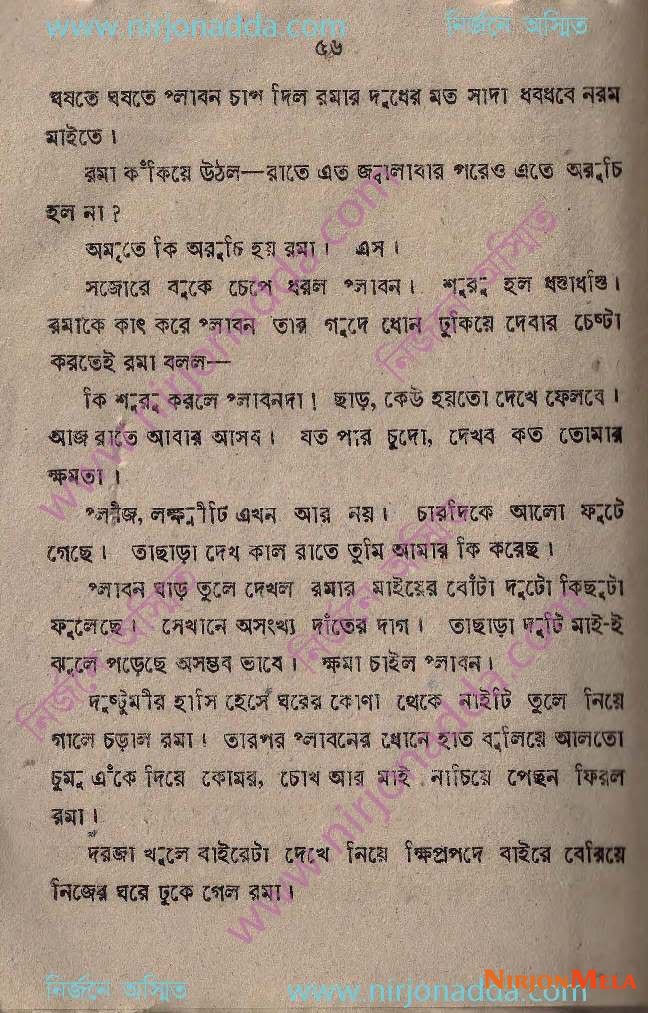 www.nirjonadda.com নির্জনে অস্মিত
৫৬
ঘষতে ঘষতে প্লাবন চাপ দিল রমার দুধের মত সাদা ধবধবে নরম
মাইতে।
রমা কঁকিয়ে উঠল—রাতে এত জ্বালাবার পরেও এতে অরুচি
হল না?
অমৃতে কি অরুচি হয় রমা। এস।
সজোরে বুকে চেপে ধরল প্লাবন। শুরু হল ধস্তাধস্তি।
রমাকে কাৎ করে প্লাবন তার গুদে ধোন ঢুকিয়ে দেবার চেষ্টা
করতেই রমা বলল—
কি শুরু করলে প্লাবনদা! ছাড়, কেউ হয়তো দেখে ফেলবে।
আজ রাতে আবার আসব। যত পার চুদো, দেখব কত তোমার
ক্ষমতা।
প্লীজ, লক্ষ্মীটি এখন আর নয়। চারদিকে আলো ফুটে
গেছে। তাছাড়া দেখ কাল রাতে তুমি আমার কি করেছ।
প্লাবন ঘাড় তুলে দেখল রমার মাইয়ের বোঁটা দুটো কিছুটা
ফুলেছে। সেখানে অসংখ্য দাঁতের দাগ। তাছাড়া দুটি মাই-ই
ঝুলে পড়েছে অসম্ভব ভাবে। ক্ষমা চাইল প্লাবন।
দুষ্টুমীর হাসি হেসে ঘরের কোণা থেকে নাইটি তুলে নিয়ে
গালে চড়াল রমা। তারপর প্লাবনের ধোনে হাত বুলিয়ে আলতো
চুমু এঁকে দিয়ে কোমর, চোখ আর মাই নাচিয়ে পেছন ফিরল
রমা।
দরজা খুলে বাইরেটা দেখে নিয়ে ক্ষিপ্রপদে বাইরে বেরিয়ে
নিজের ঘরে ঢুকে গেল রমা।
www.nirjonadda.com নির্জনে অস্মিত
www.nirjonadda.com নির্জনে অস্মিত
নির্জনে অস্মিত www.nirjonadda.com
NIRJONMELA